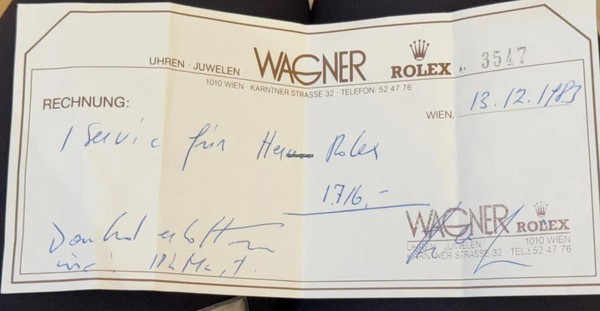 UHREN · JUWELEN WAGNER ROLEX
3547
1010 WIEN · KÄRNTNER STRASSE 32 TELEFON: 52 47 76
RECHNUNG:
WIEN, 13.12.1983
1 Service für Rolex
1.716,-
Dankend erhalten
WAGNER ROLEX
UHREN JUWELEN 1010 WIEN
KÄRNTNER STRASSE 32 TEL.: 52 47 76